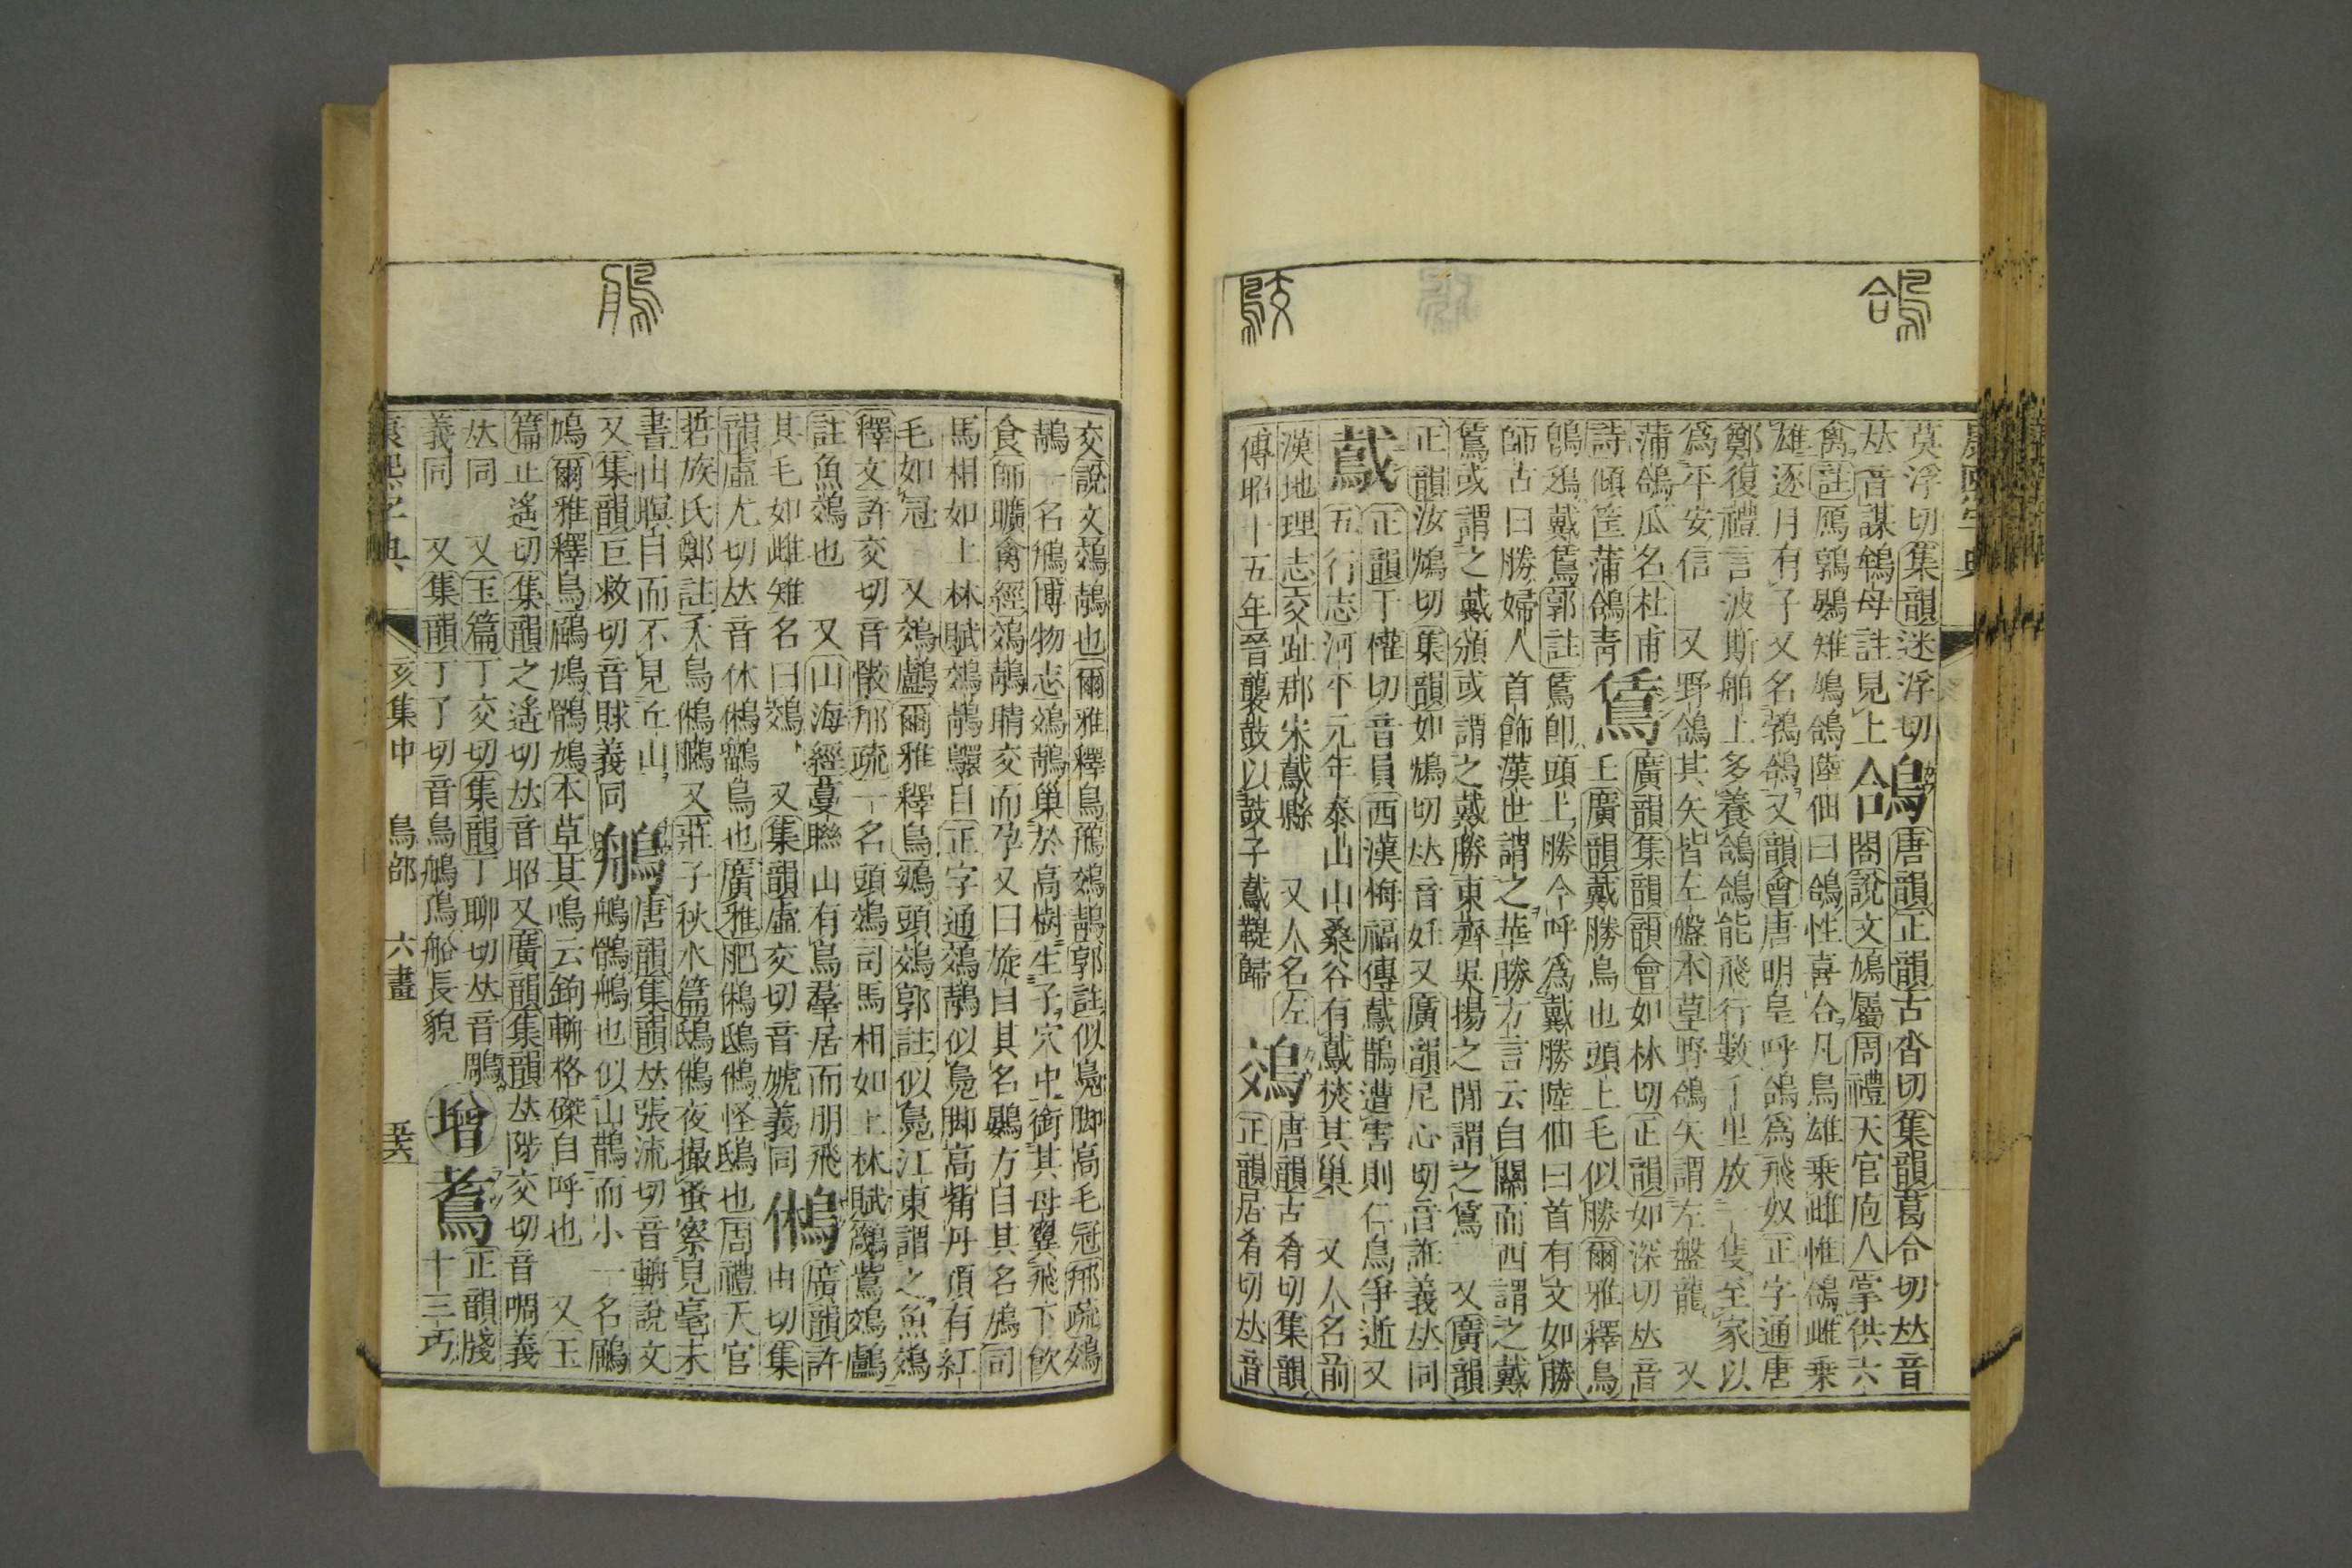 鴿
鵁
莫浮切集韻迷浮切鴿唐韻正韻古沓切集韻葛合切𠀤音
𠀤音謀鴾母註見上閤說文鳩屬周禮天官庖人掌供六
禽註鴈鶉鷃雉鳩鴿陸佃曰鴿性喜合凡鳥雄乗雌惟鴿雌乗
雄逐月有子又名鵓鴿又韻會唐明皇呼鴿爲飛奴正字通唐
鄭復禮言波斯舶上多養鴿鴿能飛行數千里放一隻至家以
爲平安信　又野鴿其矢皆左盤本草野鴿矢謂左盤龍　又
蒲鴿瓜名杜甫鵀廣韻集韻韻會如林切正韻如深切𠀤音
詩傾筐蒲鴿青壬廣韻戴勝鳥也頭上毛似勝爾雅釋鳥
鵖鴔戴鵀郭註鵀卽頭上勝今呼爲戴勝陸佃曰首有文如勝
師古曰勝婦人首飾漢世謂之華勝方言云自關而西謂之戴
鵀或謂之戴頒或謂之戴勝東齊吳揚之閒謂之鵀　又廣韻
正韻汝鴆切集韻如鴆切𠀤音妊又廣韻尼心切音誑義𠀤同
䳒正韻于權切音員西漢梅福傳䳒鵲遭害則仁鳥爭逝又
五行志河平元年泰山山桑谷有䳒焚其巢　又人名前
漢地理志交趾郡朱䳒縣　又人名左鵁唐韻古肴切集韻
傳昭十五年晉襲鼓以鼓子䳒鞮歸正韻居肴切𠀤音
鵃
交說文鵁鶄也爾雅釋鳥鳽鵁鶄郭註似鳧脚高毛冠邢疏鵁
鶄一名鳽博物志鵁鶄巢於高樹生子穴中銜其母翼飛下飮
食師曠禽經鵁鶄睛交而孕又曰旋目其名鷃方目其名鴋司
馬相如上林賦鵁鶄鸀目正字通鵁鶄似鳧脚高觜丹頂有紅
毛如冠　又鵁鸕爾雅釋鳥鴢頭鵁郭註似鳧江東謂之魚鵁
釋文許交切音髐邢疏一名頭鵁司馬相如上林賦鷀鵁鸕
註魚鵁也　又山海經蔓聯山有鳥羣居而朋飛
其毛如雌雉名曰鵁　又集韻虛交切音虓義同鵂廣韻許
韻虛尤切𠀤音休鵂鶹鳥也廣雅肥鵂鴟鵂怪鴟也周禮天官
硩族氏鄭註夭鳥鵂鶹又莊子秋水篇鴟鵂夜撮蚤察見毫末
書出瞑目而不見丘山
又集韻巨救切音賕義同鵃唐韻集韻𠀤張流切音輈說文
鶻鵃也似山鵲而小一名鶌
鳩爾雅釋鳥鶌鳩鶻鳩本草其鳴云鉤輈格磔自呼也　又玉
篇止遙切集韻之遙切𠀤音昭又廣韻集韻𠀤陟交切音啁義
𠀤同　又玉篇丁交切集韻丁聊切𠀤音鵰增鴦正韻牋
義同　又集韻丁了切音鳥鵃䳈船長貌
康熙字典　亥集中　鳥部　六畫